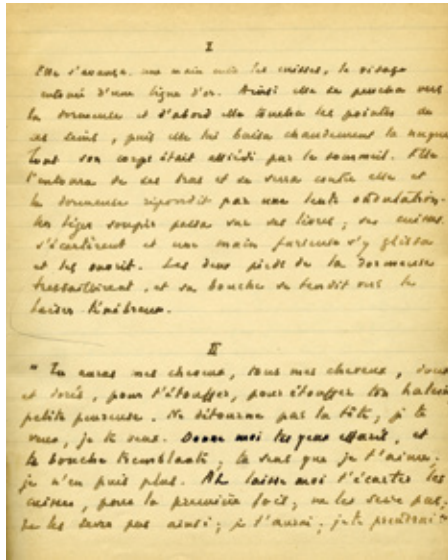 I
Elle s'avança. une main entre les cuisses, le visage
entouré d'une ligne d'or. Ainsi elle se pencha vers
la dormeuse et d'abord elle toucha les pointes de
ses seins, puis elle lui baisa chaudement la nuque
tout son corps était attiédi par le sommeil. Elle
l'entoura de ses bras et se serra contre elle et
la dormeuse répondit par une lente ondulation.
Un léger soupir passa sur ses lèvres; ses cuisses
s'écartèrent et une main furieuse s'y glissa
et les ouvrit. Les deux pieds de la dormeuse
tressaillirent, et sa bouche se tendit vers le
baiser ténébreux.
II
"Tu auras mes cheveux, tous mes cheveux, doux
et dorés, pour t'étouffer, pour étouffer ton haleine
petite peureuse. Ne détourne pas la tête, je te
veux, je te veux. Donne moi tes yeux effarés, et
ta bouche tremblante; tu sens que je t'aime;
je n'en puis plus. Ah laisse moi t'écarter les
cuisses, pour la première fois; ne les serre pas;
ne les serre pas ainsi; je t'aurai; je te prendrai"